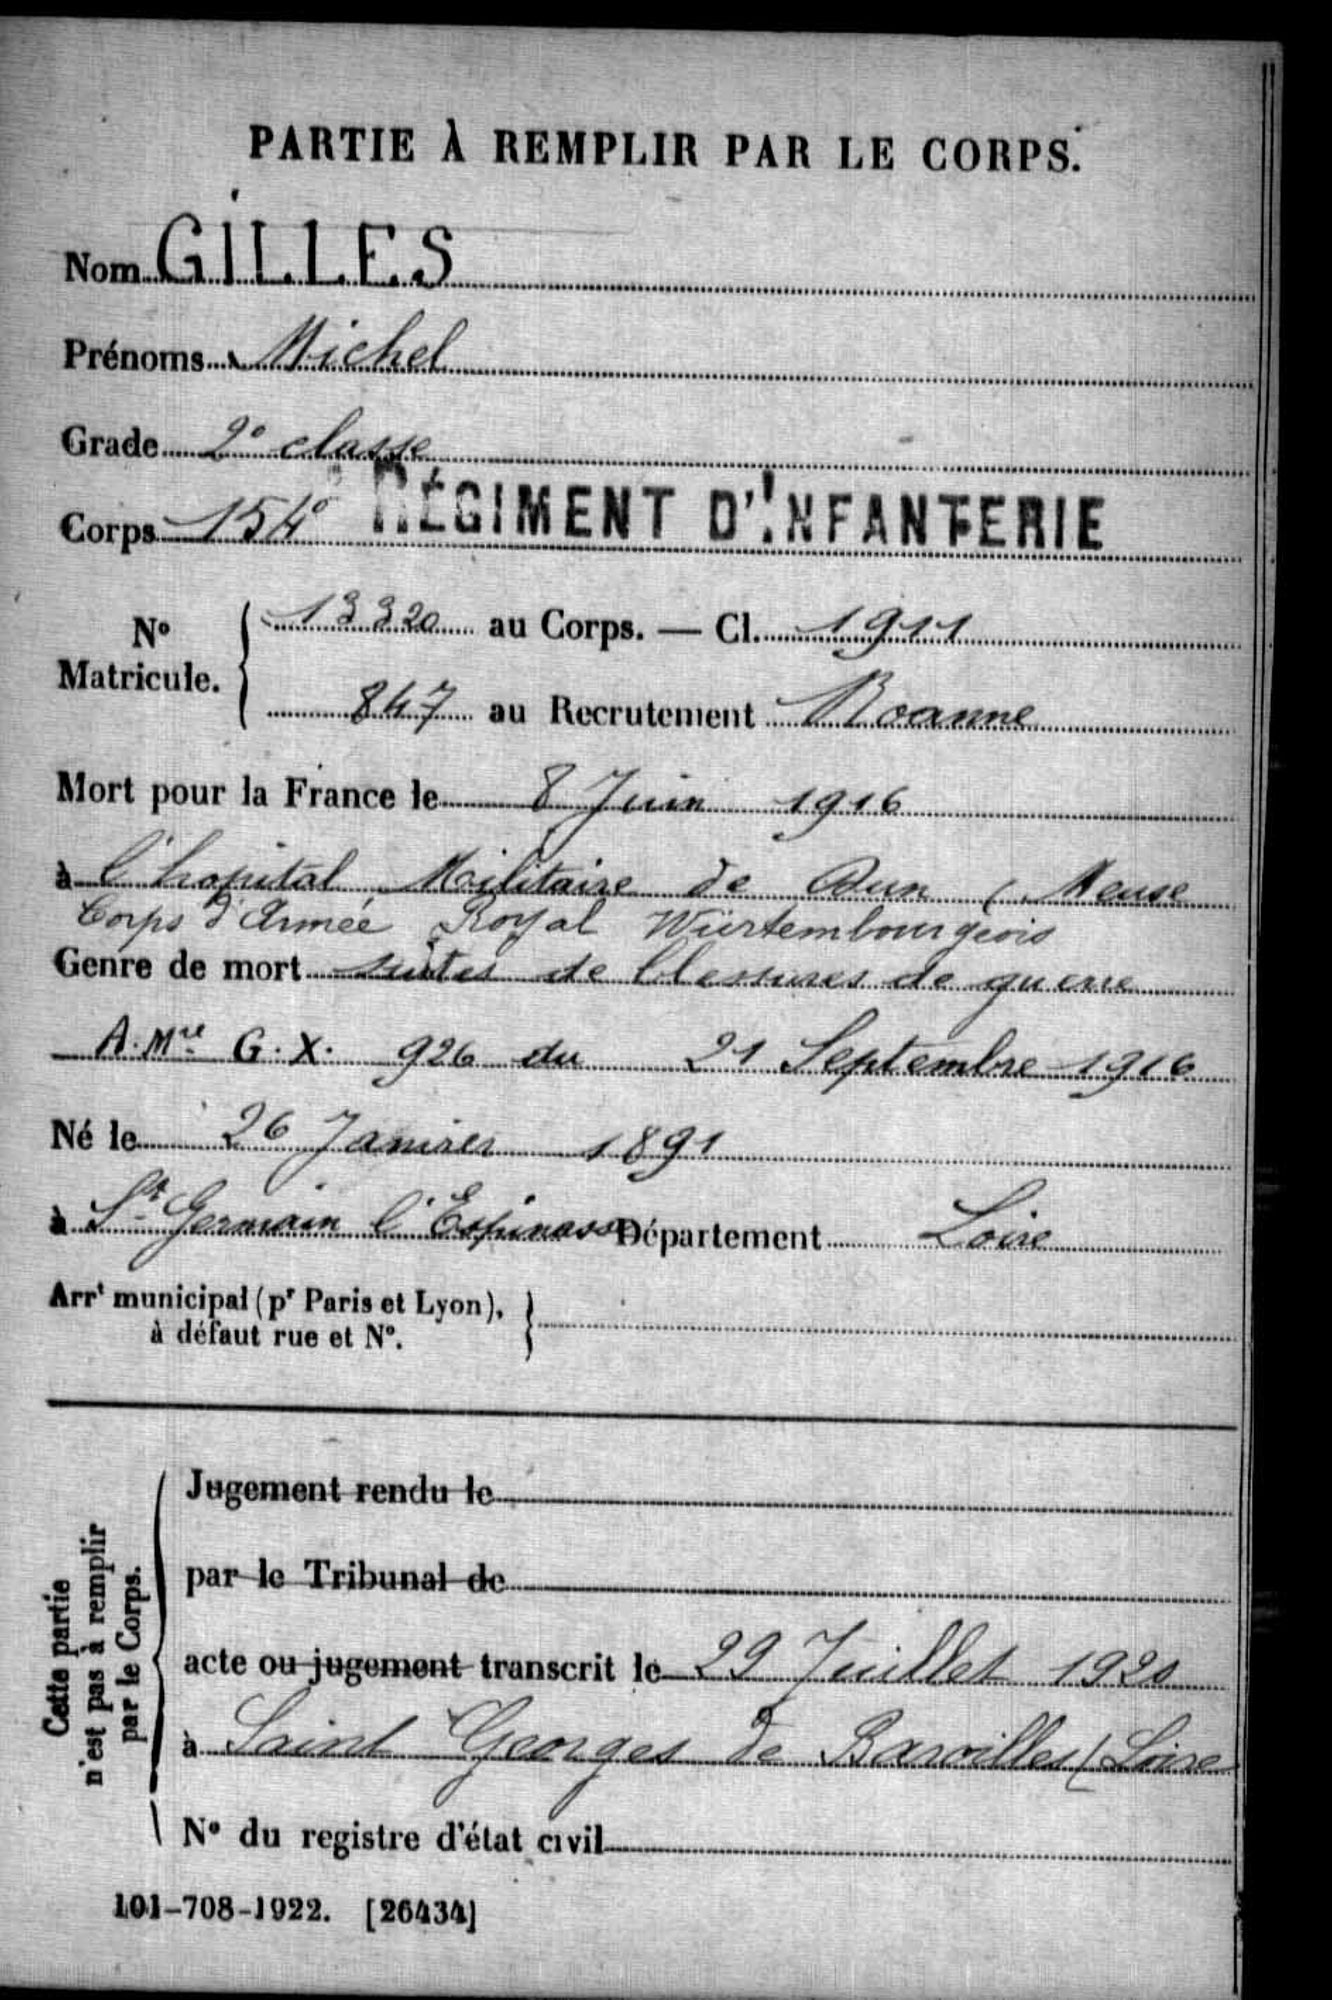 PARTIE À REMPLIR PAR LE CORPS.
Nom GILLES
Prénoms Michel
Grade 2e classe
Corps 154e RÉGIMENT D'INFANTERIE
No Matricule. { 13320 au Corps. — Cl. 1911
847 au Recrutement Roanne
Mort pour la France le 8 Juin 1916
à l'hopital Militaire de Dun ( Meuse
Corps d'Armée Royal Würtembourgeois
Genre de mort suites de blessures de guerre
A. Mre G. X. 926 du 21 Septembre 1916
Né le 26 Janvier 1891
à St Germain l'Espinasse Département Loire
Arrt municipal (pr Paris et Lyon), à défaut rue et No. }
Cette partie n'est pas à remplir par le Corps.
Jugement rendu le
par le Tribunal de
acte ou jugement transcrit le 29 Juillet 1920
à Saint Georges de Baroilles ( Loire
No du registre d'état civil
101-708-1922. [26434]